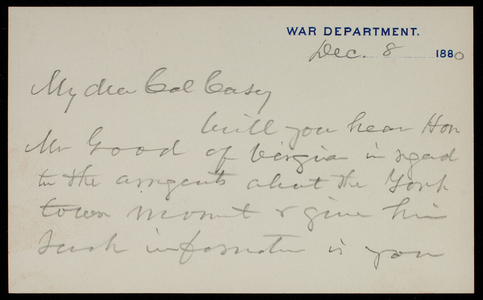 WAR DEPARTMENT.
Dec. 8 1880
My dear Col Casey
Will you hear Hon
Mr Good of Virginia in regard
to the arrgents about the York
town Monmt & give him
such information as you